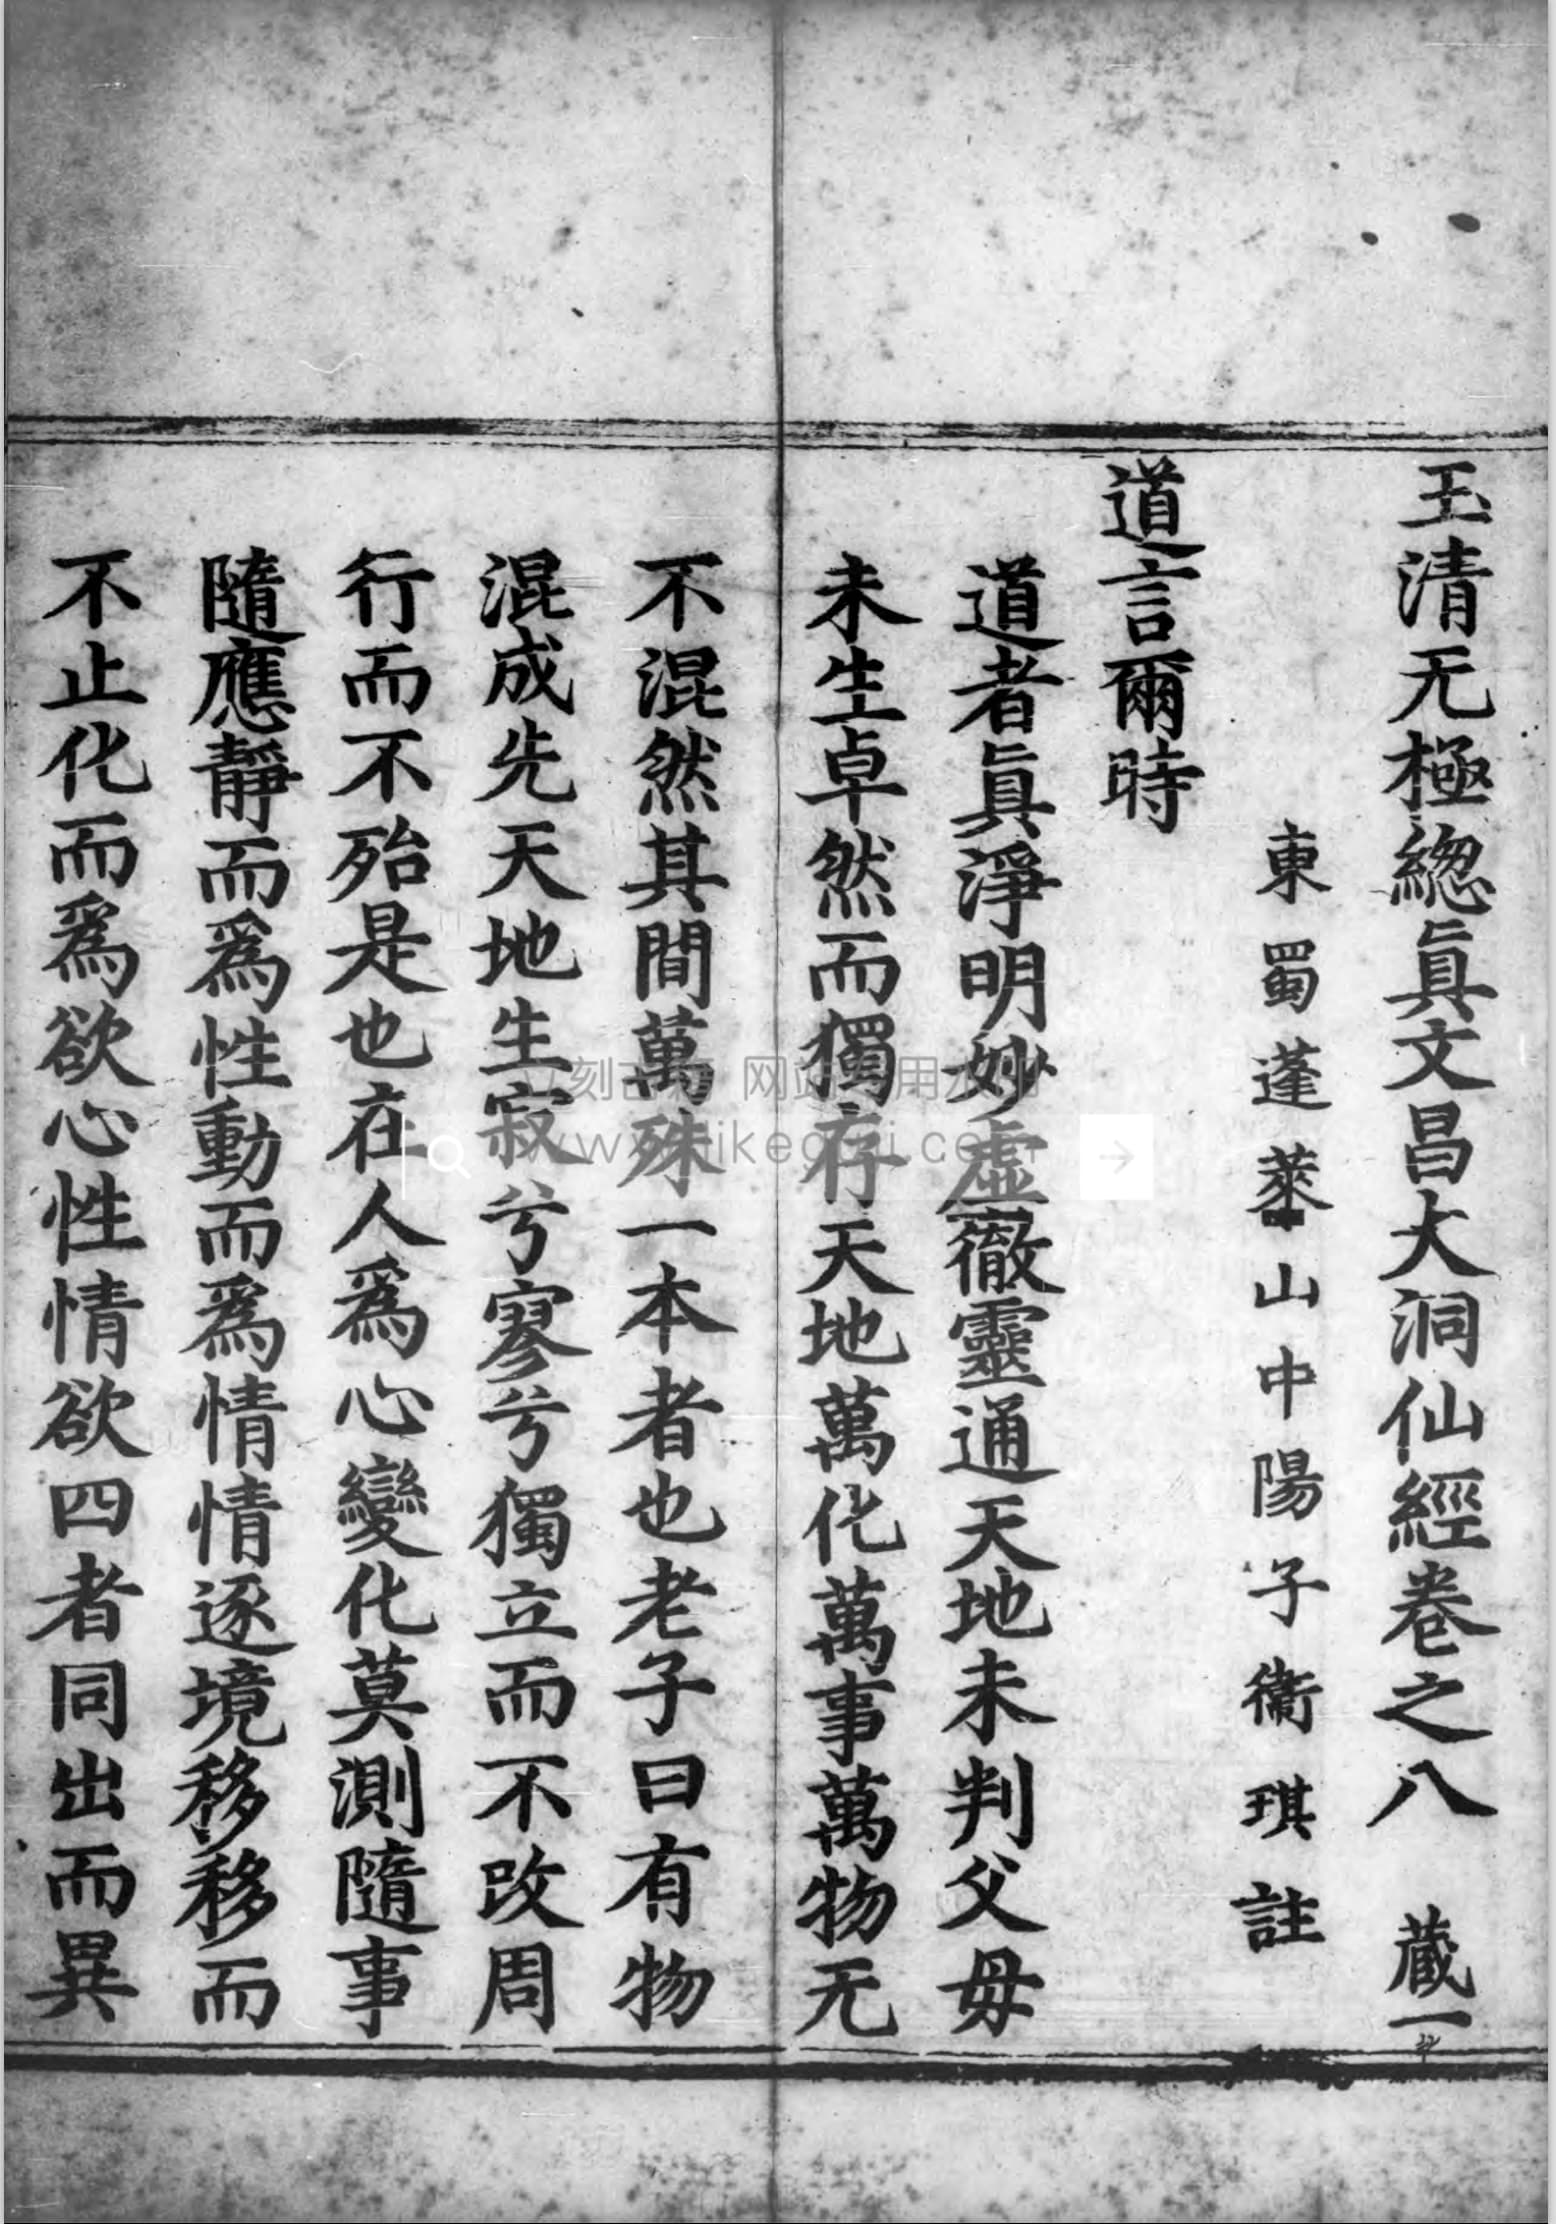 玉清无極緫眞文昌大洞仙經卷之八 蔵一
東蜀蓬萊山中陽子衞琪註
道言爾時
道者眞淨明妙虛徹靈通天地未判父母
未生卓然而獨存天地萬化萬事萬物无
不混然其間萬殊一本者也老子曰有物
混成先天地生寂兮寥兮獨立而不改周
行而不殆是也在人爲心變化莫測隨事
隨應靜而爲性動而爲情情逐境移移而
不止化而爲欲心性情欲四者同出而異